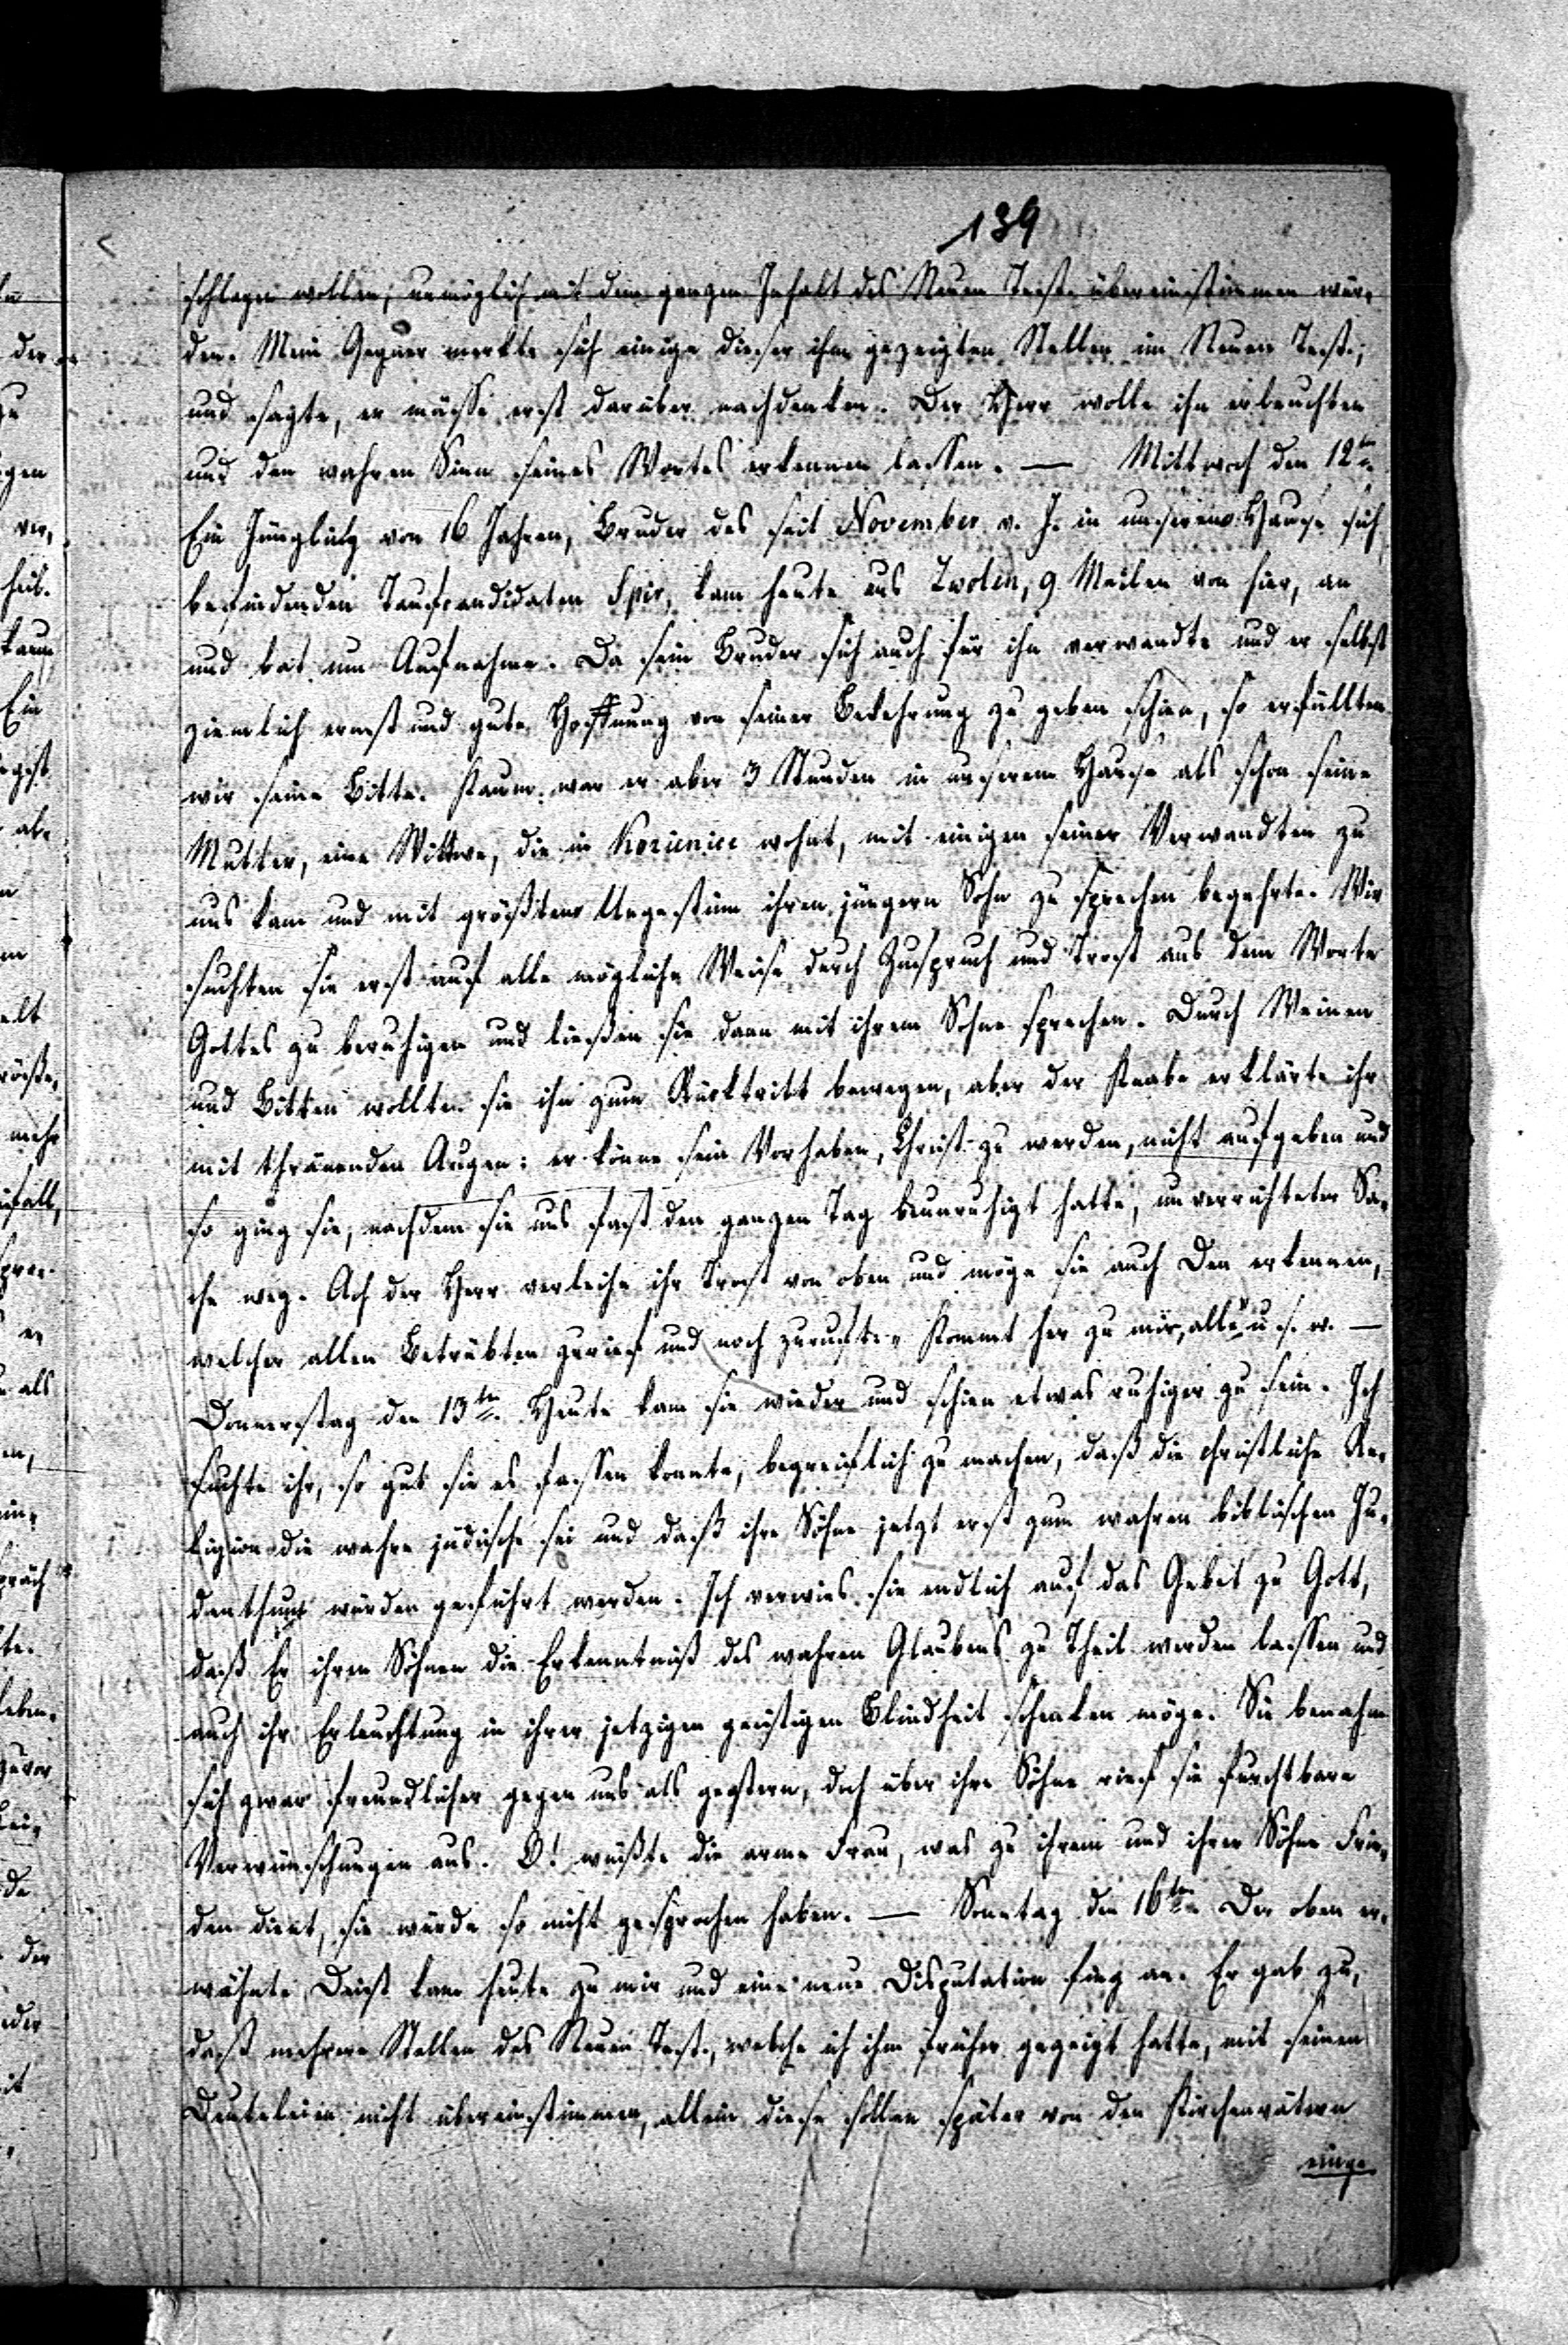 139
schlagen wollen, unmöglich mit dem ganzen Inhalt des Neuen Test. übereinstimmen wür-
den. Mein Gegner merkte sich einige dieser ihm gezeigten Stellen im Neuen Test.,
und sagte, er müsse erst darüber nachdenken. Der Herr wolle ihn erleuchten
und den wahren Sinn seines Wortes erkennen lassen. — Mittwoch den 12ten
Ein Jüngling von 16 Jahren, Bruder des seit November v. J. in unserem Hause sich
befindenden Taufcandidaten Spir, kam heute aus Zwolin, 9 Meilen von hier, an
und bat um Aufnahme. Da sein Bruder sich auch für ihn verwandte und er selbst
ziemlich ernst und gute Hoffnung von seiner Bekehrung zu geben schien, so erfüllten
wir seine Bitte. Kaum war er aber 3 Stunden in unserem Hause als schon seine
Mutter, eine Wittwe, die in Kozienice wohnt, mit einigen seiner Verwandten zu
uns kam und mit größtem Ungestüm ihren jüngern Sohn zu sprechen begehrte. Wir
suchten sie erst auf alle mögliche Weise durch Zuspruch und Trost aus dem Worte
Gottes zu beruhigen und ließen sie dann mit ihrem Sohne sprechen. Durch Weinen
und Bitten wollte sie ihn zum Rücktritt bewegen, aber der Knabe erklärte ihr
mit thränenden Augen: er könne sein Vorhaben, Christ zu werden, nicht aufgeben und
so ging sie, nachdem sie uns fast den ganzen Tag beunruhigt hatte, unverrichteter Sa-
che weg. Ach der Herr verleihe ihr Trost von oben und möge sie auch Den erkennen,
welcher allen Betrübten zurief und noch zuruft: „Kommt her zu mir, alle" u. s. w. —
Donnerstag den 13ten Heute kam sie wieder und schien etwas ruhiger zu sein. Ich
suchte ihr, so gut sie es fassen konnte, begreiflich zu machen, daß die christliche Re-
ligion die wahre jüdische sei und daß ihre Söhne jetzt erst zum wahren biblischen Ju-
denthum würden geführt werden. Ich verwies sie endlich auf das Gebet zu Gott,
daß Er ihren Söhnen die Erkenntniß des wahren Glaubens zu Theil werden lassen und
auch ihr Erleuchtung in ihrer jetzigen geistigen Blindheit schenken möge. Sie benahm
sich zwar freundlicher gegen uns als gestern, doch über ihre Söhne rief sie furchtbare
Verwünschungen aus. O! wüßte die arme Frau, was zu ihrem und ihrer Söhne Frie-
den dient, sie würde so nicht gesprochen haben. — Sonntag den 16ten Der oben er-
wähnte Deist kam heute zu mir und eine neue Disputation fing an. Er gab zu,
daß mehrere Stellen des Neuen Test., welche ich ihm früher gezeigt hatte, mit seinen
nicht übereinstimmen, allein diese sollen später von den Kirchenvätern
einge